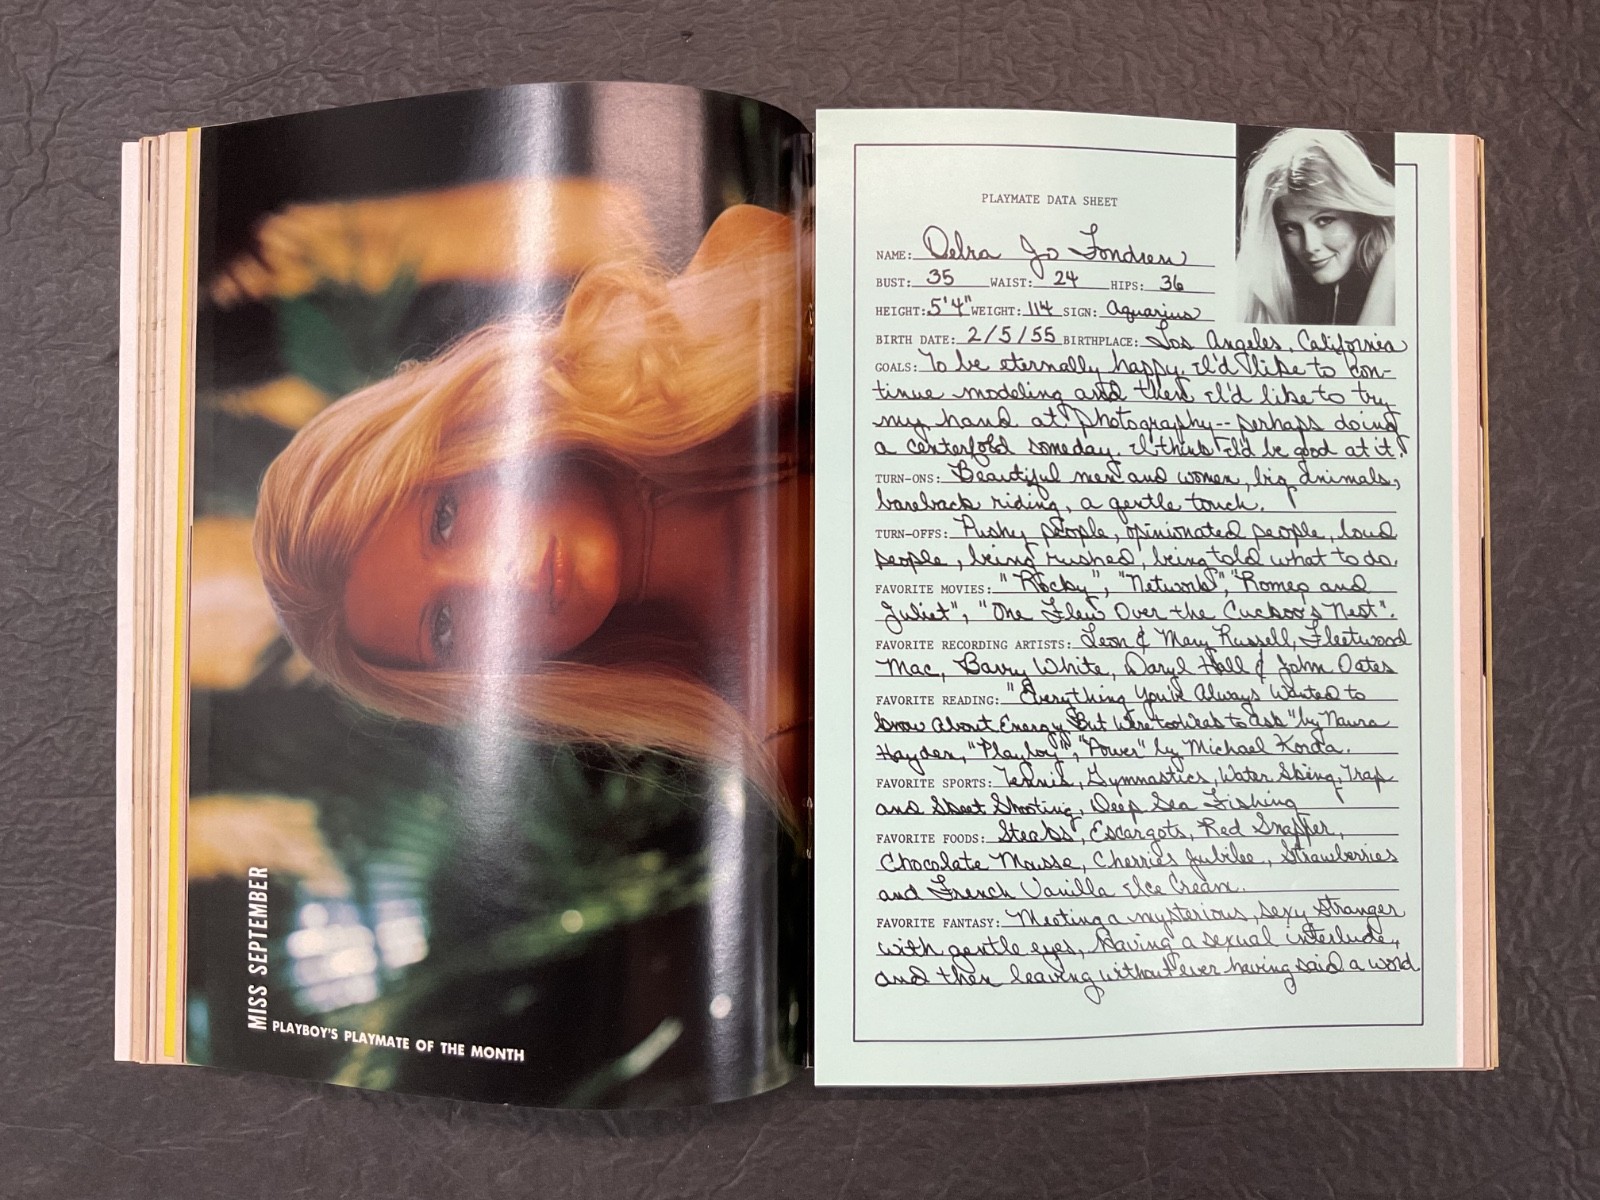 MISS SEPTEMBER
PLAYBOY'S PLAYMATE OF THE MONTH
PLAYMATE DATA SHEET
NAME: Debra Jo Fondren
BUST: 35 WAIST: 24 HIPS: 36
HEIGHT: 5'4" WEIGHT: 114 SIGN: Aquarius
BIRTH DATE: 2/5/55 BIRTHPLACE: Los Angeles, California
GOALS: To be eternally happy. I'd like to con-
tinue modeling and then I'd like to try
my hand at photography-- perhaps doing
a centerfold someday. I think I'd be good at it!
TURN-ONS: Beautiful men and women, big animals,
bareback riding, a gentle touch.
TURN-OFFS: Pushy people, opinionated people, loud
people, being rushed, being told what to do.
FAVORITE MOVIES: "Rocky", "Network", "Romeo and
Juliet", "One Flew Over the Cuckoo's Nest".
FAVORITE RECORDING ARTISTS: Leon & Mary Russell, Fleetwood
Mac, Barry White, Daryl Hall & John Oates
FAVORITE READING: "Everything You've Always Wanted to
Know About Energy But Were too Weak to Ask" by Naura
Hayden, "Playboy", "Power" by Michael Korda.
FAVORITE SPORTS: Tennis, Gymnastics, Water Skiing, Trap
and Skeet Shooting, Deep Sea Fishing
FAVORITE FOODS: Steaks, Escargots, Red Snapper,
Chocolate Mousse, Cherries Jubilee, Strawberries
and French Vanilla Ice Cream.
FAVORITE FANTASY: Meeting a mysterious, sexy stranger
with gentle eyes, having a sexual interlude,
and then leaving without ever having said a word